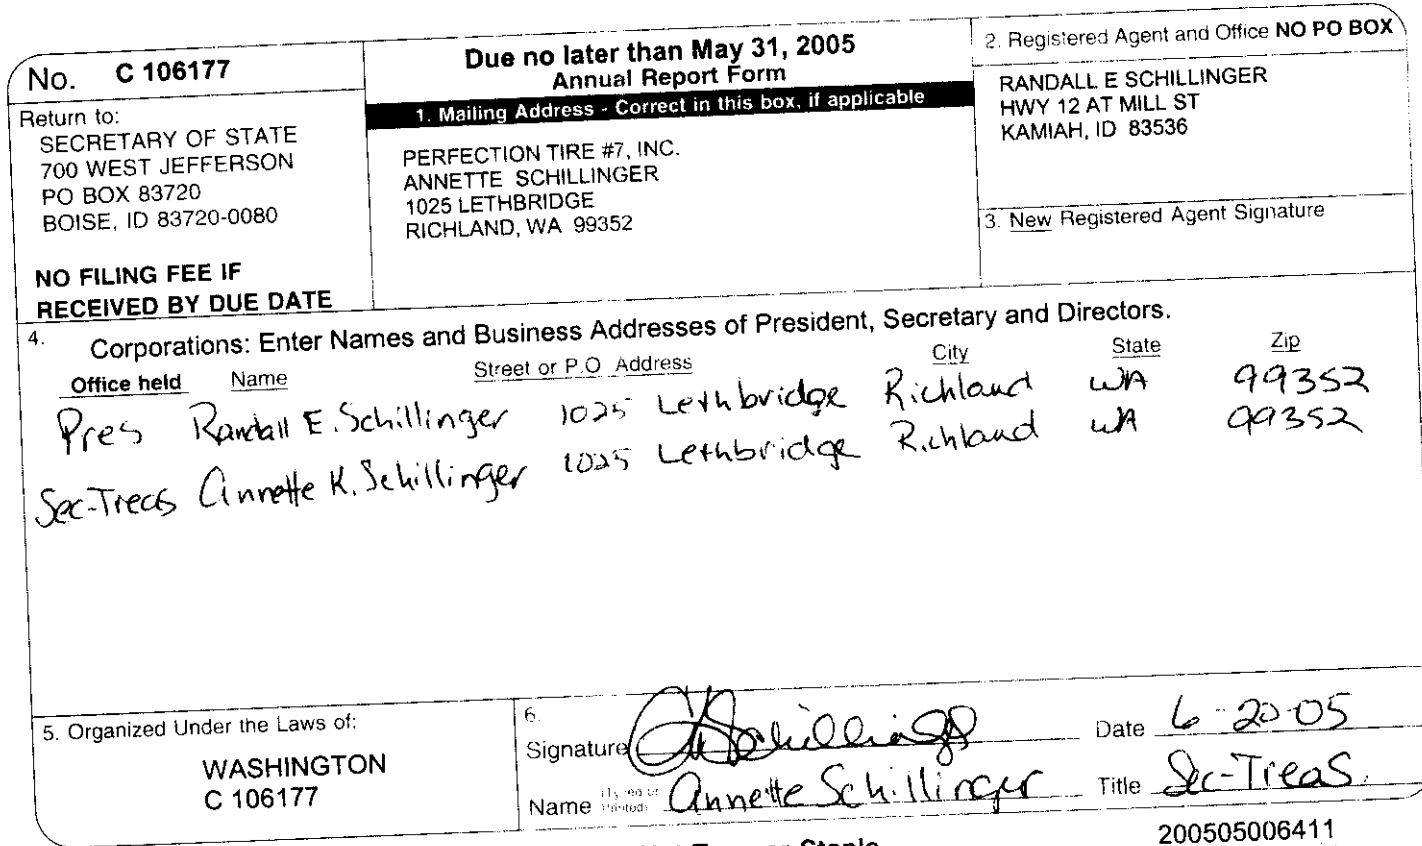 No. C 106177
Return to:
SECRETARY OF STATE
700 WEST JEFFERSON
PO BOX 83720
BOISE, ID 83720-0080
NO FILING FEE IF
RECEIVED BY DUE DATE
Due no later than May 31, 2005
Annual Report Form
1. Mailing Address - Correct in this box, if applicable
PERFECTION TIRE #7, INC.
ANNETTE SCHILLINGER
1025 LETHBRIDGE
RICHLAND, WA 99352
2. Registered Agent and Office NO PO BOX
RANDALL E SCHILLINGER
HWY 12 AT MILL ST
KAMIAH, ID 83536
3. New Registered Agent Signature
4. Corporations: Enter Names and Business Addresses of President, Secretary and Directors.
Office held Name Street or P.O Address City State Zip
Pres Randall E. Schillinger 1025 Lethbridge Richland WA 99352
Sec-Treas Annette K. Schillinger 1025 Lethbridge Richland WA 99352
5. Organized Under the Laws of:
WASHINGTON
C 106177
6.
Signature Schillinger Date 6-20-05
Name (Typed or Printed) Annette Schillinger Title Sec-Treas.
200505006411